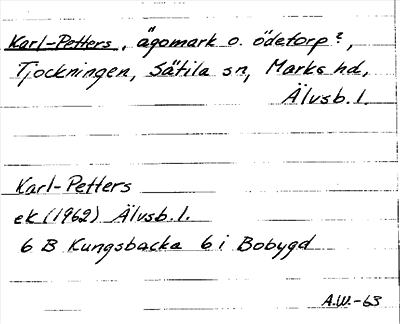 Karl-Petters, ägomark o. ödetorp?,
Tjockningen, Sätila sn, Marks hd,
Älvsb. l.
Karl-Petters
ek (1962) Älvsb. l.
6 B Kungsbacka 6 i Bobygd
A.W.-63